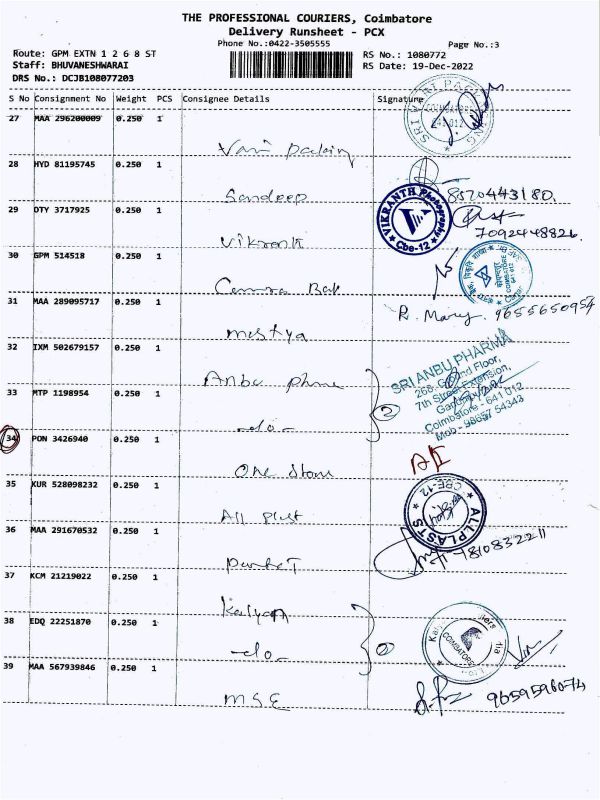 THE PROFESSIONAL COURIERS, Coimbatore
Delivery Runsheet - PCX
Phone No.:0422-3505555
Page No.:3
Route: GPM EXTN 1 2 6 8 ST
RS No.: 1080772
Staff: BHUVANESHWARAI
RS Date: 19-Dec-2022
DRS No.: DCJB108077203
S No Consignment No Weight PCS Consignee Details Signature
27 MAA 296200009 0.250 1
SRI VARI PACKING
COIMBATORE
641 012
Vari packing
28 HYD 81195745 0.250 1
Sandeep 8520443180.
29 OTY 3717925 0.250 1
VIKRANTH Photography
Cbe-12
7092448826.
Vikranth
30 GPM 514518 0.250 1
COIMBATORE
Canara Bank
31 MAA 289095717 0.250 1
R. Mary. 9655650954
32 IXM 502679157 0.250 1
Anbu
SRI ANBU PHARMA
268, Ground Floor,
7th Street Extension,
Gandhipuram
Coimbatore - 641 012
Mob - 98657 54343
33 MTP 1198954 0.250 1
-do- 2
34 PON 3426940 0.250 1
One Store
35 KUR 528098232 0.250 1
ALL PLASTS
CBE-12
All plast
36 MAA 291670532 0.250 1
9810832211
37 KCM 21219022 0.250 1
Kalyan
38 EDQ 22251870 0.250 1
COIMBATORE
-do- 2
39 MAA 567939846 0.250 1
MSE 9659596074